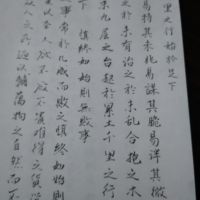 里之行始於足下
易持其未兆易謀其脆易泮其微
之於未有治之於未亂合抱之木
末九层之台起於累土千里之行
慎終如始則無敗事
事常於几成而敗之慎終如始則
以圣人欲不欲不貴難得之貨
人之所過以輔萬物之自然而不